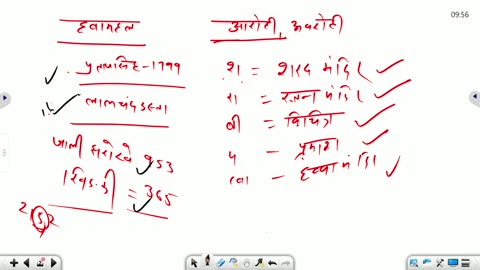 हवामहल
प्रतापसिंह - 1799
लालचंद उस्ता
जाली झरोखे 953
खिड़की = 365
आरोही, अवरोही
श = शरद मंदिर
र = रतन मंदिर
वी = विचित्र
प - प्रकाश
हवा - हवा मंदिर
09:56